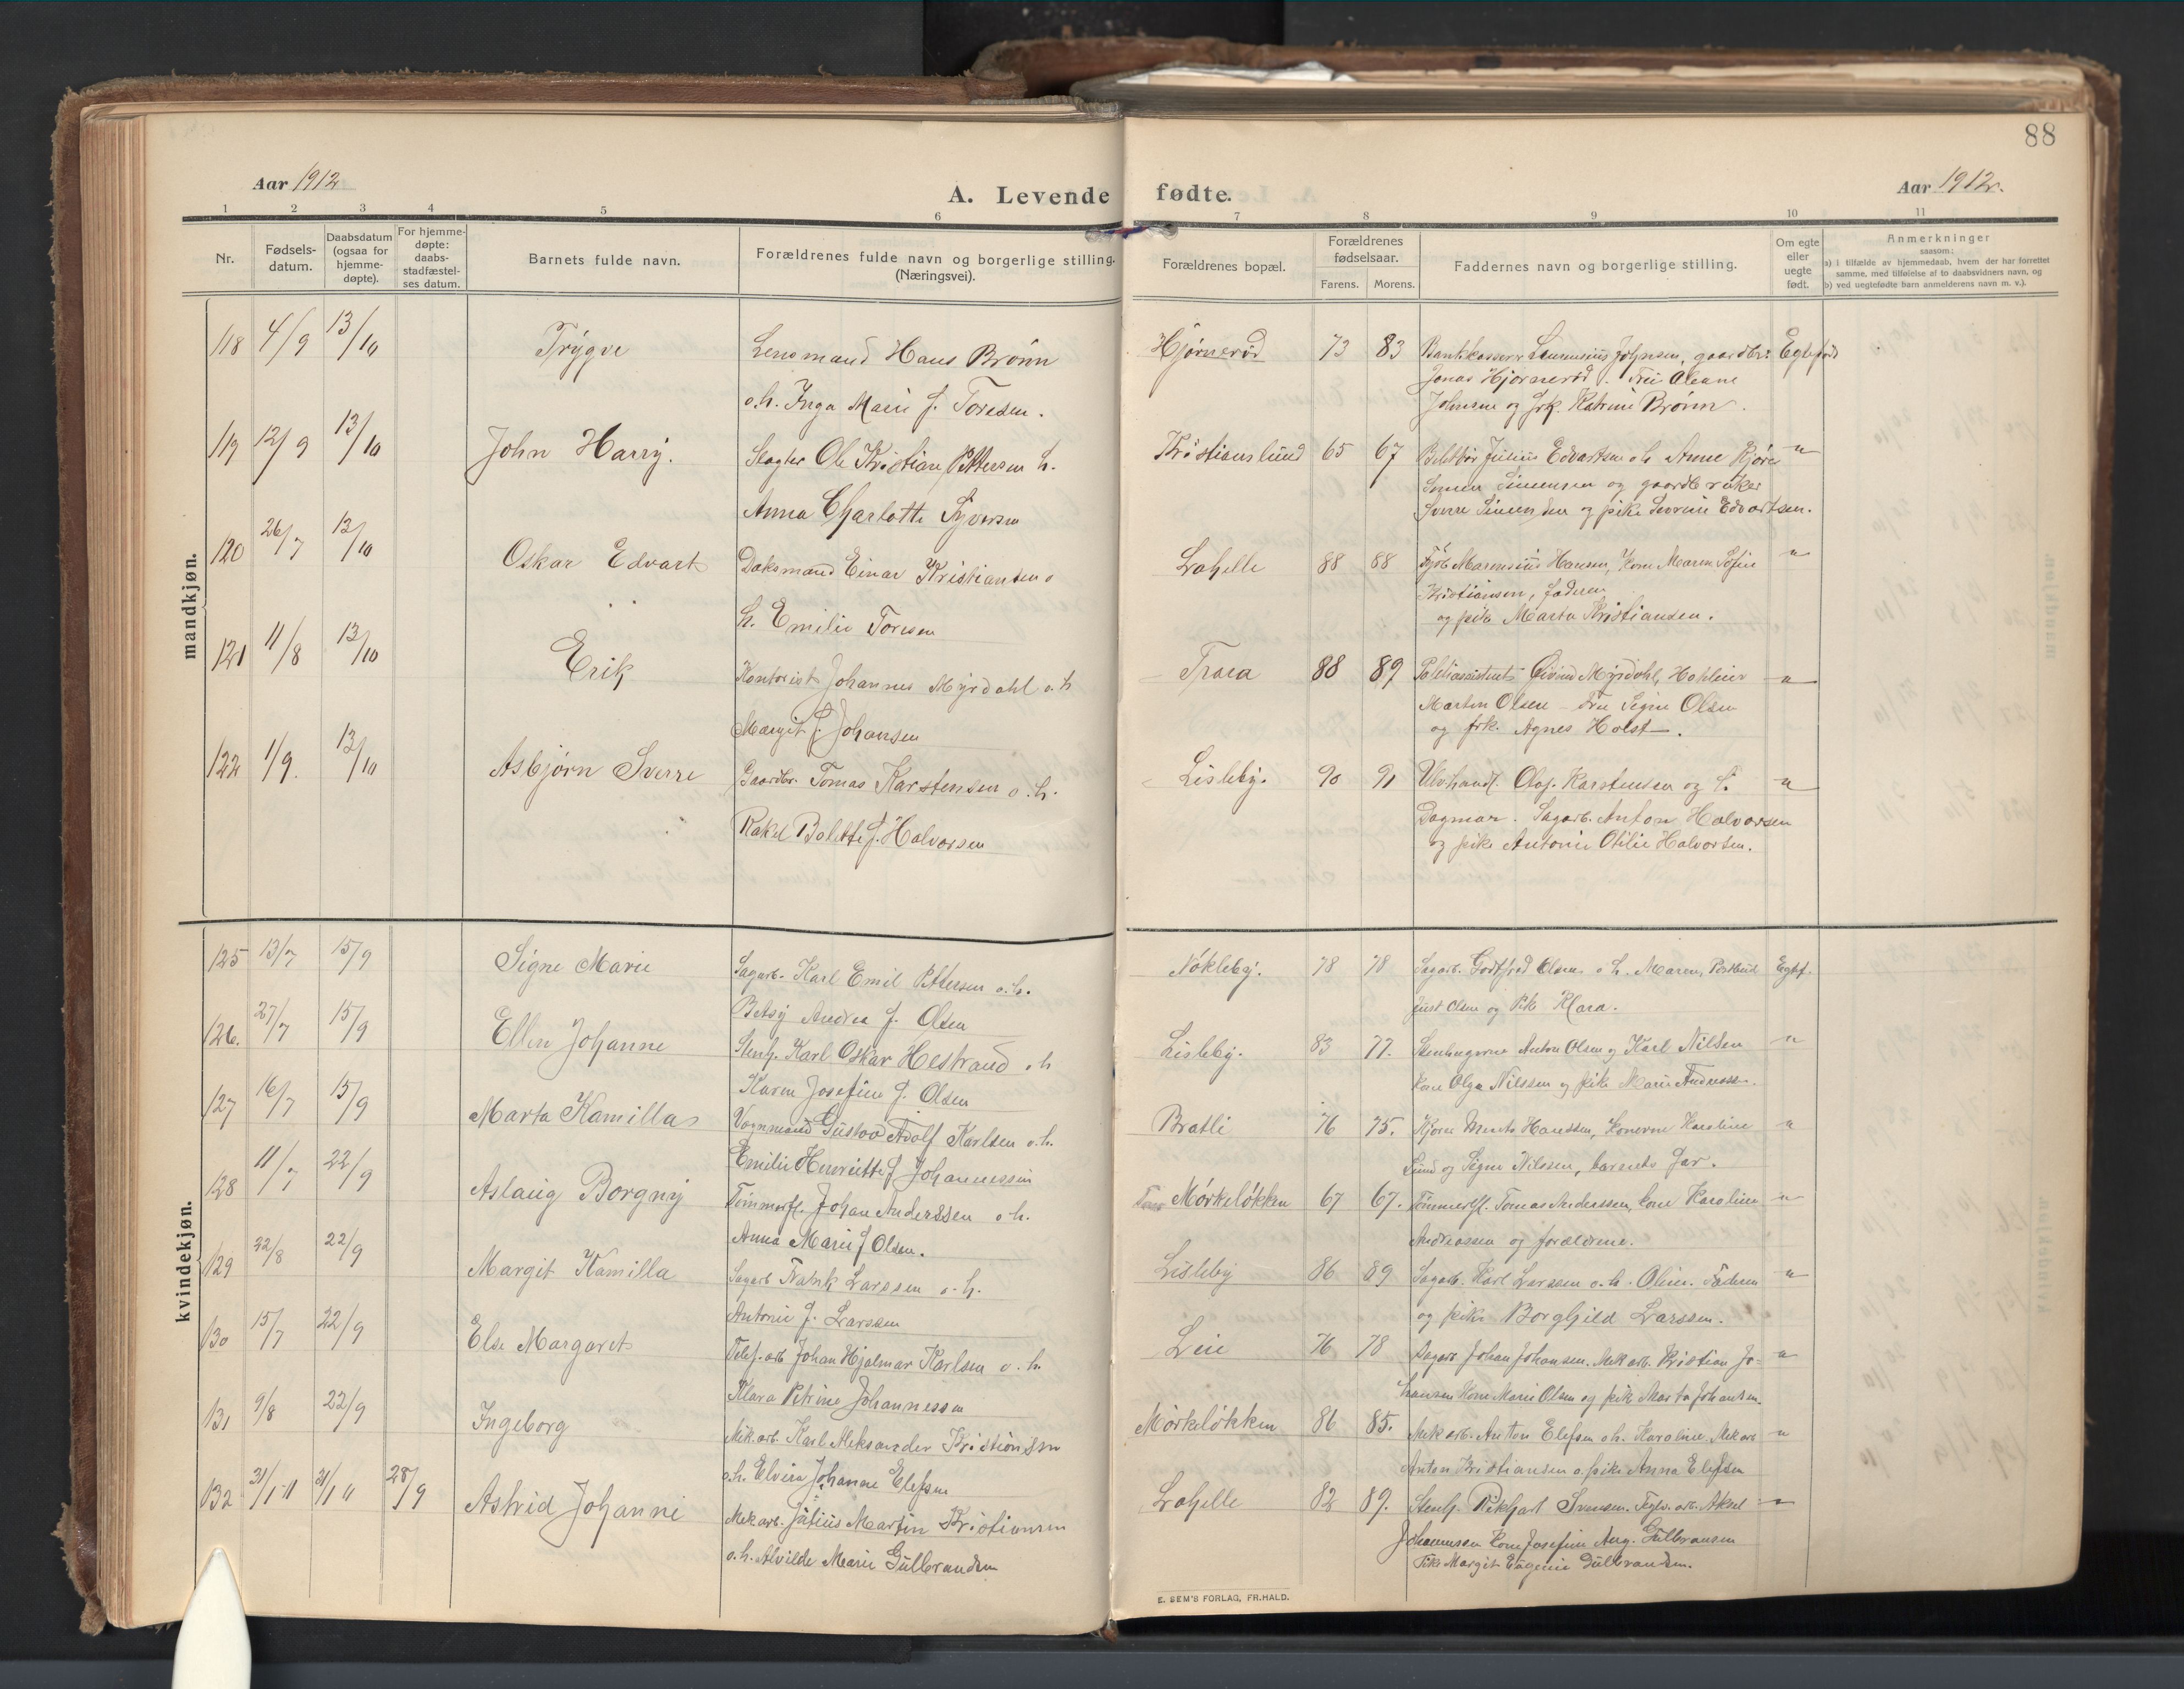 88
Aar 1912
A. Levende fødte.
Aar 1912.
1 2 3 4 5 6 7 8 9 10 11
Nr.
Fødsels-
datum.
Daabsdatum
(ogsaa for
hjemme-
døpte).
For hjemme-
døpte:
daabs-
stadfæstel-
ses datum.
Barnets fulde navn.
Forældrenes fulde navn og borgerlige stilling.
(Næringsvei).
Forældrenes bopæl.
Forældrenes
fødselsaar.
Farens. Morens.
Faddernes navn og borgerlige stilling.
Om egte
eller
uegte
født.
Anmerkninger
saasom:
a) i tilfælde av hjemmedaab, hvem der har forrettet
samme, med tilføielse af to daabsvidners navn, og
b) ved uegtefødte barn anmelderens navn m. v.).
mandkjøn.
118 4/9 13/10 Trygve
Lensmand Hans Brönn
o.h. Inga Marie f. Toresen.
Hjørnerød 73 83
Bankkasserer Laurensius Johnsen, gaardbr.
Jonas Hjørnerød. Fru Oleane
Johnsen og frk. Katrine Brönn.
Egtefød
119 12/9 13/10 John Harry.
Slagter Ole Kristian Pettersen o h.
Anna Charlotte Syversen
Kristianslund 65 67
Julius Edvartsen o h Anne
Simensen og gaardbruker
Sverre Simensen og pike Severine Edvartsen.
"
120 26/7 13/10 Oskar Edvart
Daksmand Einar Kristiansen o
h. Emilie Toresen
Lahelle 88 88
Marensius Hansen, Kone Maren Sofie
Kristiansen, faderen
og pike Marta Kristiansen.
"
121 11/8 13/10 Erik
Kontorist Johannes Myrdahl o. h
Margit f. Johansen
Trara 88 89
Politiassistent Øivind Myrdahl,
Martin Olsen - Fru Signe Olsen
og frk. Agnes Holst.
"
122 1/9. 13/10 Asbjørn Sverre
Gaardbr. Tomas Karstensen o. h.
Rakel Bolette f. Halvorsen
Lisleby. 90 91
Olaf Karstensen og h.
Dagmar. Sagarb. Anton Halvorsen
og pike Antonie Otilie Halvorsen.
"
kvindekjøn.
125 13/7 15/9 Signe Marie
Sagarb. Karl Emil Pettersen o.h.
Betsy Andrea f. Olsen
Nökleby. 78 78
Sagarb. Godtfred Olsen o h. Maren, Postbud
Just Olsen og Pike Klara.
Egtef.
126. 27/7 15/9 Ellen Johanne
Stenh. Karl Oskar Hestrand o h
Karen Josefine f. Olsen
Lisleby. 83 77.
Stenhuggerne Anton Olsen og Karl Nilsen
Kone Olga Nilssen og pike Marie Andressen.
"
127 16/7 15/9 Marta Kamilla
Vognmand Gustav Adolf Karlsen o.h.
Emilie Henriette f Johannessen
Bratli 76 75.
Hanssen, Konerne Karoline
Lund og Signe Nilssen, barnets far.
"
128 11/7 22/9 Aslaug Borgny
Tömmerfl. Johan Anderssen o h.
Anna Marie f Olsen.
Mörkelökken 67 67.
Tömmerfl. Tomas Anderssen, kone Karoline
Andreassen og forældrene.
"
129 22/8 22/9 Margit Kamilla
Sagarb Frank Larssen o. h.
Antonie f. Larssen
Lisleby 86 89
Sagarb. Karl Larssen o.h. Oline. Faderen
og pike Borghild Larssen.
"
130 15/7 22/9 Else Margaret
Telef. arb Johan Hjalmar Karlsen o. h.
Klara Petrine Johannessen
Leie 76 78
Sagarb Johan Johansen. Mek arb. Kristian Jo-
hansen Kone Marie Olsen og pike Marta Johansen.
"
131 9/8 22/9 Ingeborg
Mek. arb. Karl Aleksander Kristiansen
o.h. Elvira Johanne Elefsen
Mörkelökken 86 85.
Mek arb. Anton Elefsen o h. Karoline. Mek arb
Anton Kristiansen o. pike Anna Elefsen
"
132 31/1 11 31/1 11 28/9 Astrid Johanne
Mek arb. Julius Martin Kristiansen
o. h. Alvilde Marie Gulbrandsen
Lahelle 82 89.
Stenh. Rikhart Svensen. Teglv. arb. Aksel
Johannesen Kone Josefine Aug. Gulbransen
Pike Margit Eugenie Gulbrandsen.
"
E. SEM'S FORLAG, FR.HALD.